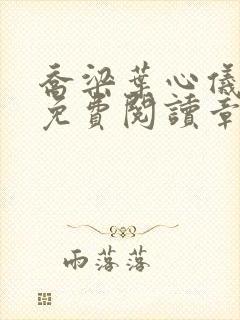 喬梁葉心儀
免費閱讀章
雨落落